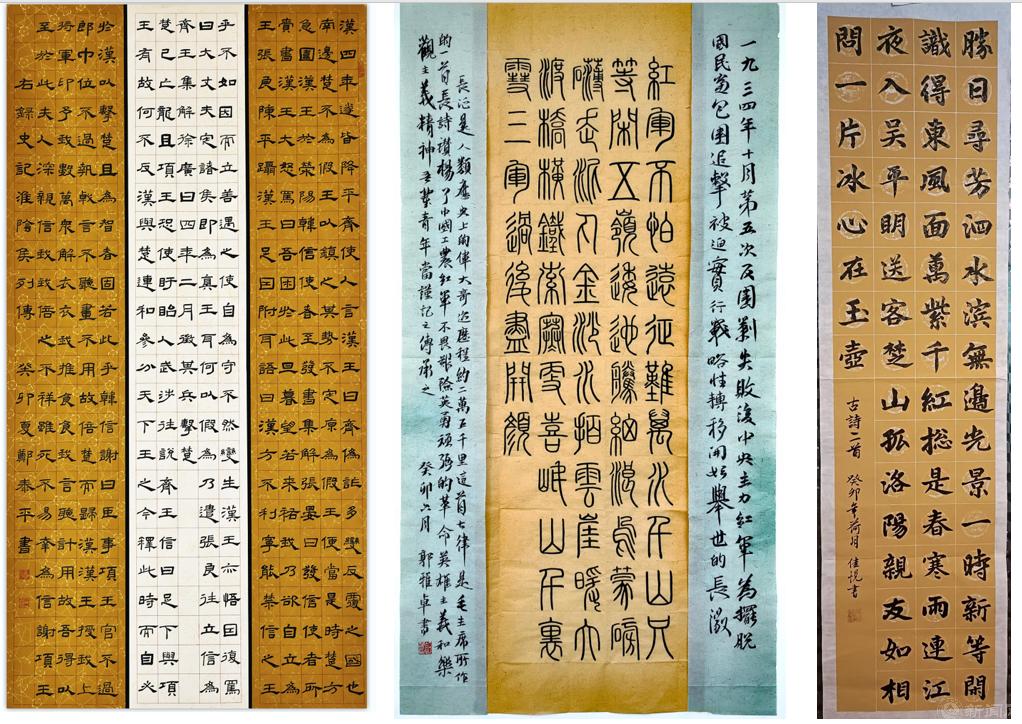 漢四年遂皆降平齊使人言漢王曰齊偽詐多變反覆之國也
南邊楚不為假王以鎮之其勢不定願為假王便當是時楚方
急圍漢王於榮陽韓信使者至發書集解張晏曰發信使者所
賫書漢王大怒罵曰吾困於此旦暮望若來佑我乃欲自立為
王張良陳平躡漢王足因附耳語曰漢方不利寧能禁信之王
乎不如因而立善遇之使自為守不然變生漢王亦悟因復罵
曰大丈夫定諸侯即為真王耳何以假為乃遣張良往立信為
齊王集解徐廣曰四年二月徵其兵擊楚
楚已亡龍且項王恐使盱眙人武涉往說齊王信曰足下與項
王有故何不反漢與楚連和參分天下王之今釋此時而自必
於漢以擊楚且為智者固若此乎韓信謝曰臣事項王官不過
郎中位不過執戟言不聽畫不用故倍楚而歸漢漢王授我上
將軍印予我數萬衆解衣衣我推食食我言聽計用故吾得以
至於此夫人深親信我我倍之不祥雖死不易幸為信謝項王
右錄史記淮陰侯列傳 癸卯夏鄭泰平書
一九三四年十月第五次反圍剿失敗後中央主力紅軍為擺脫
國民黨包圍追擊被迫實行戰略性轉移開始舉世的長徵
紅軍不怕遠征難萬水千山只
等閑五嶺逶迤騰細浪烏蒙磅
礴走泥丸金沙水拍雲崖暖大
渡橋橫鐵索寒更喜岷山千裏
雪三軍過後盡開顏
長征是人類歷史上的偉大奇跡歷程約二萬五千里這首七律是毛主席所作
的一首長詩讚揚了中國工農紅軍不畏艱險英勇頑強的革命英雄主義和樂
觀主義精神吾輩青年當謹記之傳承之 癸卯六月 郭雅卓書
勝日尋芳泗水滨無邊光景一時新等閑
識得東風面萬紫千紅総是春寒雨連江
夜入吴平明送客楚山孤洛陽親友如相
問一片冰心在玉壺
古詩二首 癸卯年荷月 佳悦書
新闻